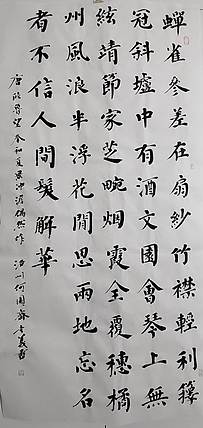 蟬雀叅差在扇紗竹襟輕利籜
冠斜壚中有酒文園會琴上無
絃靖節家芝畹烟霞全覆穗橘
州風浪半浮花閒思兩地忘名
者不信人間髮解華
唐陸魯望奉和夏景沖澹偶然作